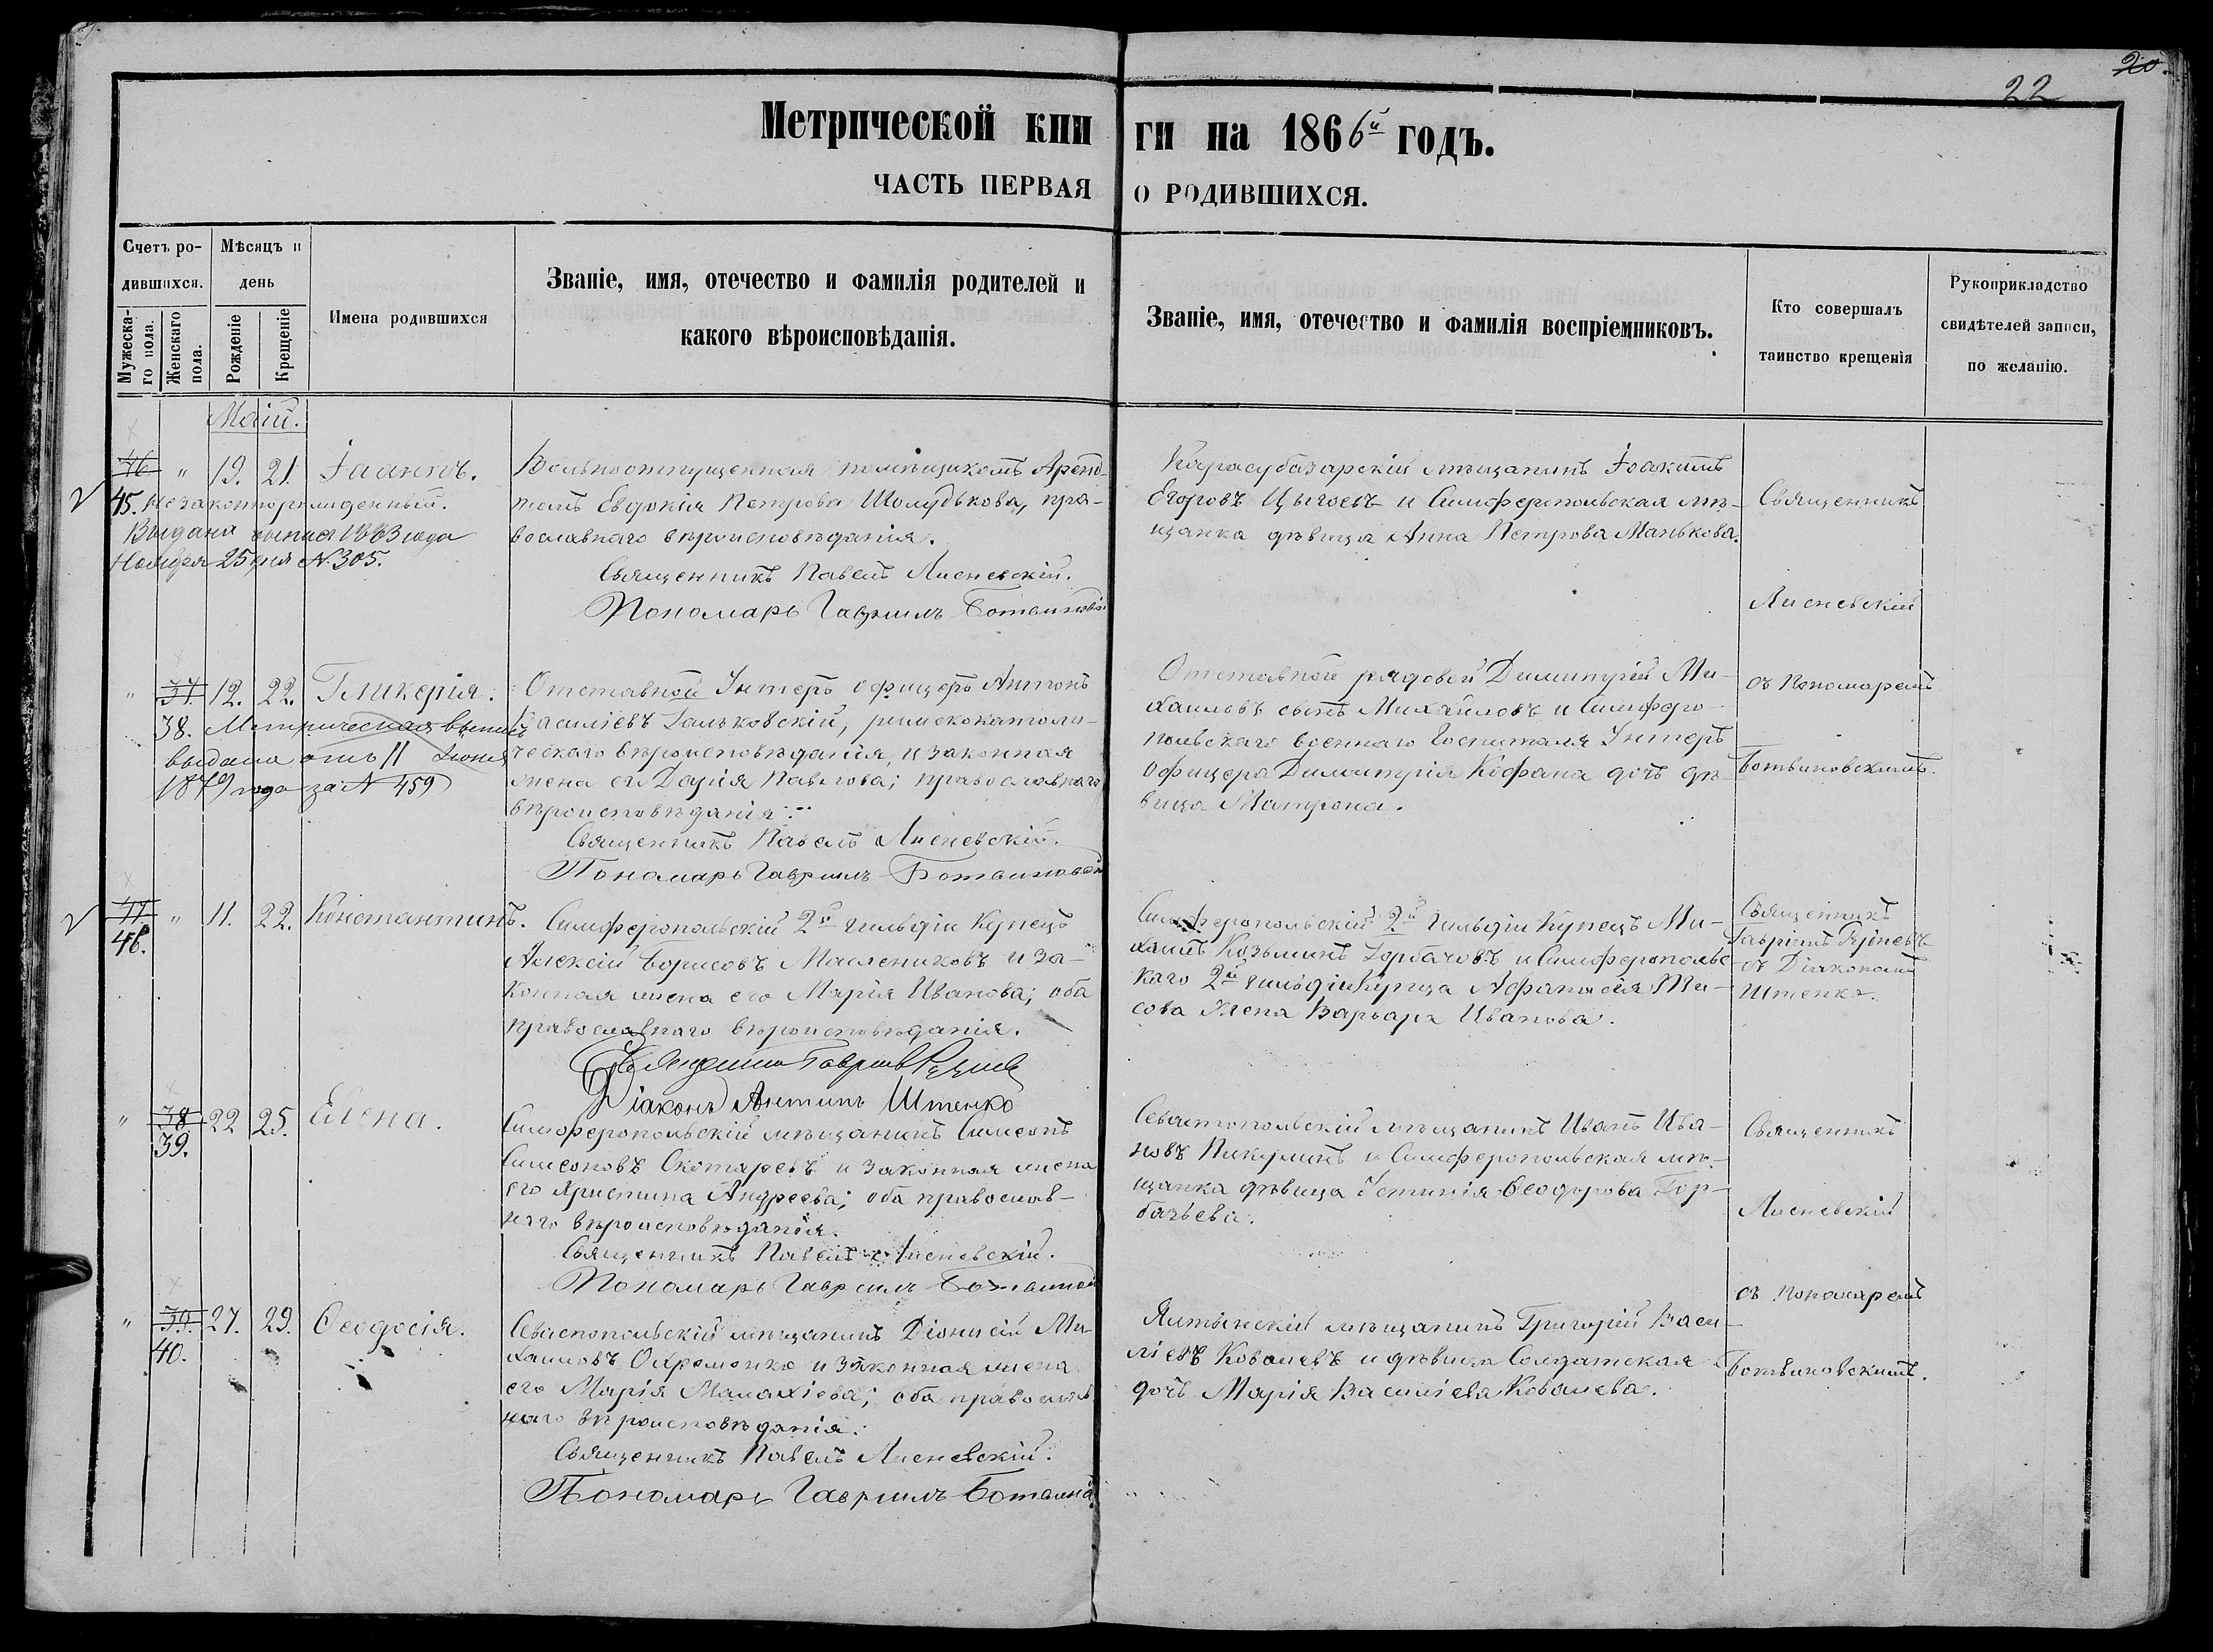 20.
22
Метрической кни ги на 1866й годъ.
ЧАСТЬ ПЕРВАЯ О РОДИВШИХСЯ.
Счетъ ро-
дившихся.
Мужеска-
го пола.
Женскаго
пола.
Мѣсяцъ и
день
Рожденіе
Крещеніе
Имена родившихся
Званіе, имя, отечество и фамилія родителей и
какого вѣроисповѣданія.
Званіе, имя, отечество и фамилія воспріемниковъ.
Кто совершалъ
таинство крещенія
Рукоприкладство
свидѣтелей записи,
по желанію.
Маій.
46 " 19. 21.
45. Незаконнорожденный.
Выдана 1883 года
Ноября 25 дня № 305.
Вольноотпущенная помѣщикомъ Аренд-
томъ Евдокія Петрова Шолудькова, пра-
вославнаго вѣроисповѣданія.
Священникъ Павелъ Лисневскій.
Пономарь Гавріилъ
Карасубазарскій мѣщанинъ Іоакимъ
Егоровъ и Симферопольская мѣ-
щанка дѣвица Анна Петрова Манькова.
Священникъ
Лисневскій
" 37. 12. 22. Гликерія.
38. Метрическая
выдана отъ 11 Іюня
1879 года за № 459
Отставной Унтеръ офицеръ Антонъ
Василіевъ римскокатоли-
ческаго вѣроисповѣданія, и законная
жена его Дарія Павлова; православнаго
вѣроисповѣданія.
Священникъ Павелъ Лисневскій.
Пономарь Гавріилъ
Отставной рядовой Димитрій Ми-
хаиловъ сынъ Михайловъ и Симферо-
польскаго военнаго Госпиталя Унтеръ
офицера Димитрія Кофана дочь дѣ-
вица Матрона.
съ Пономаремъ
Ботвиновскимъ.
47. " 11. 22. Константинъ.
46.
Симферопольскій 2й гильдіи Купецъ
Алексій Борисовъ Маслениковъ и за-
конная жена его Марія Иванова; оба
православнаго вѣроисповѣданія.
Священникъ Гавріилъ
Діаконъ Антипъ Штенко
Симферопольскій 2й гильдіи Купецъ Ми-
хаилъ Козьминъ Горбачовъ и Симферопольс-
каго 2й гильдіи Купца Афанасія
сова жена Варвара Иванова.
Священникъ
Гавріилъ
съ Діакономъ
Штенко.
" 38 22 25. Елена.
39.
Симферопольскій мѣщанинъ Симеонъ
Симеоновъ Скотаревъ и законная жена
его Христина Андреева; оба православ-
наго вѣроисповѣданія.
Священникъ Павелъ Лисневскій.
Пономарь Гавріилъ
Севастопольскій мѣщанинъ Иванъ Ива-
новъ Пикулинъ и Симферопольская мѣ-
щанка дѣвица Устинія Ѳеодорова Гор-
бачева.
Священникъ
Лисневскій
" 39. 27. 29. Ѳеодосія.
40.
Севастопольскій мѣщанинъ Діонисій Ми-
хаиловъ Охременко и законная жена
его Марія Малахіева; оба православ-
наго вѣроисповѣданія.
Священникъ Павелъ Лисневскій.
Пономарь Гавріилъ
Ялтынскій мѣщанинъ Григорій Васи-
ліевъ Ковалевъ и дѣвица Солдатская
дочь Марія Василіева Ковалева.
съ Пономаремъ
Ботвиновскимъ.